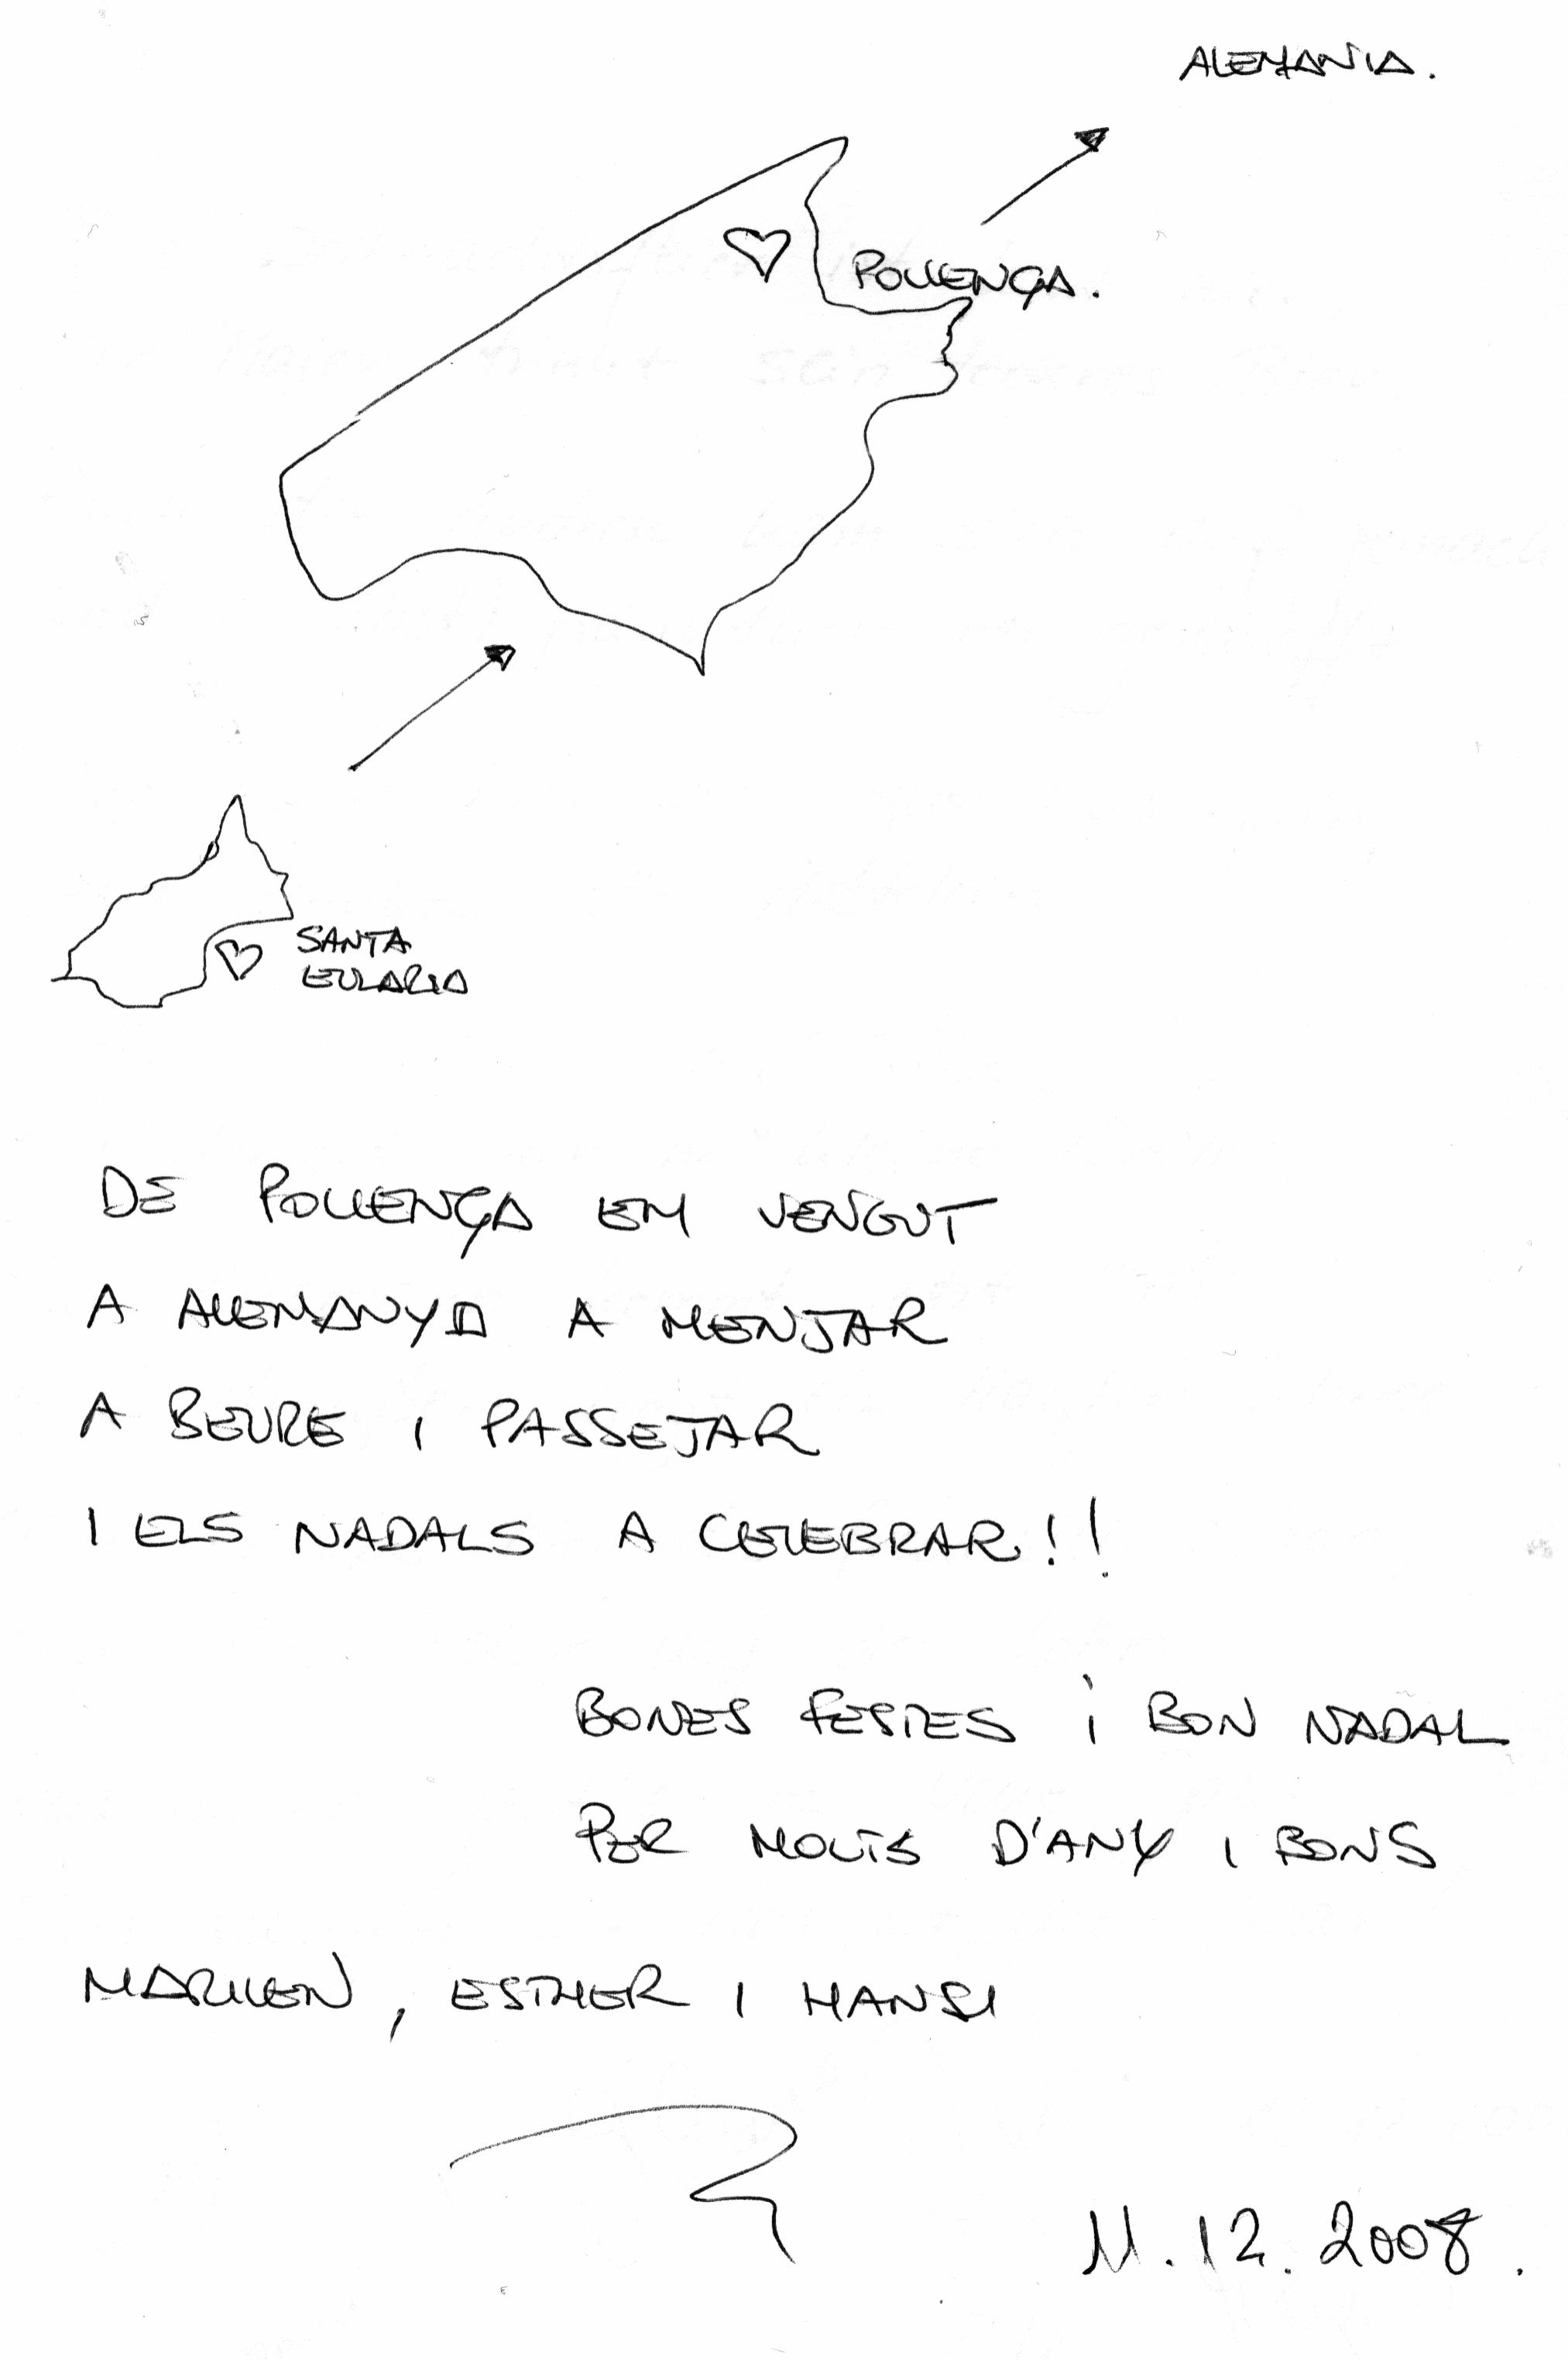 ALEMANIA.
POLLENÇA.
SANTA
EULARIA
DE POLLENÇA EM VENGUT
A ALEMANYA A MENJAR
A BEURE I PASSEJAR
I ELS NADALS A CELEBRAR!!
BONES FESTES i BON NADAL
PER MOLTS D'ANY I BONS
MARILEN, ESTHER I HANSI
11.12.2008.